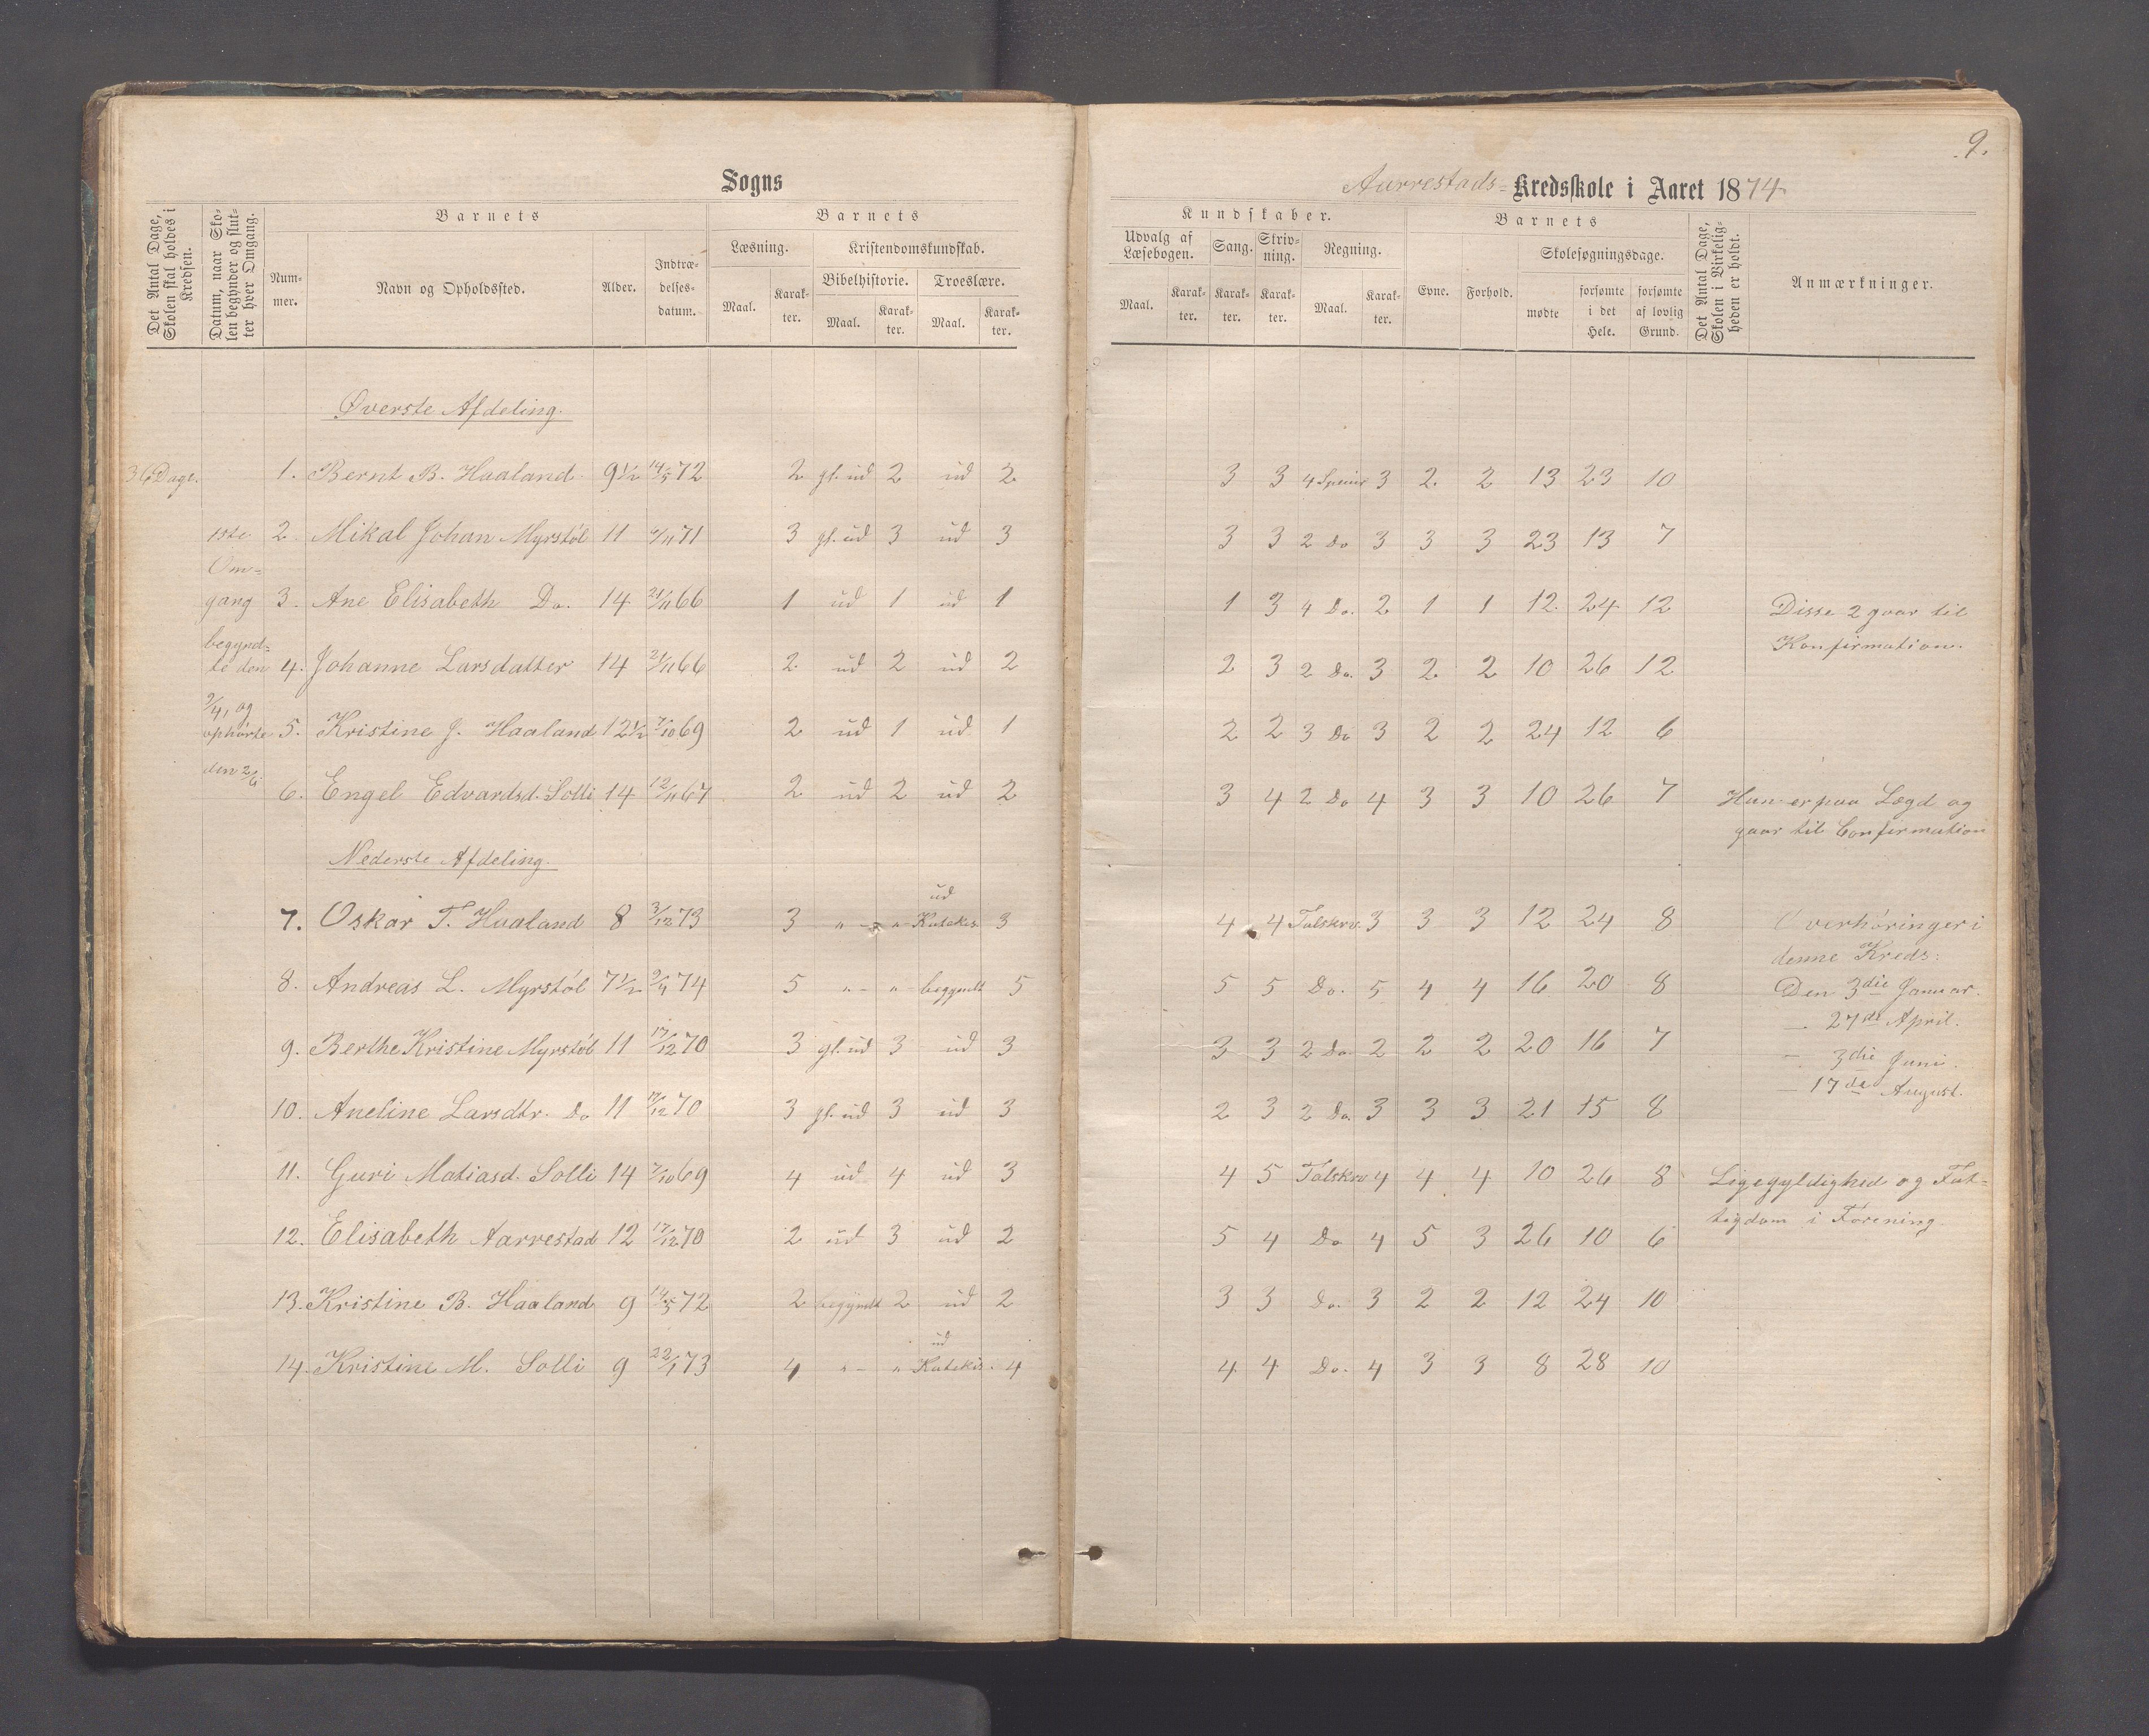 9.
Sogns
Aarrestads- Kredsskole i Aaret 1874
Det Antal Dage, Skolen skal holdes i Kredsen.
Datum, naar Skolen begynder og slutter hver Omgang.
Barnets
Nummer.
Navn og Opholdssted.
Alder.
Indtrædelsesdatum.
Barnets
Læsning.
Maal.
Karakter.
Kristendomskundskab.
Bibelhistorie.
Maal.
Karakter.
Troeslære.
Maal.
Karakter.
Kundskaber.
Udvalg af Læsebogen.
Maal.
Karakter.
Sang.
Karakter.
Skrivning.
Karakter.
Regning.
Maal.
Karakter.
Barnets
Evne.
Forhold.
Skolesøgningsdage.
mødte
forsømte i det Hele.
forsømte af lovlig Grund.
Det Antal Dage, Skolen i Virkeligheden er holdt.
Anmærkninger.
Øverste Afdeling.
36 Dage.
1ste
Om-
gang
begynd-
te den
9/4, og
ophørte
den 2/6
1. Bernt B. Haaland 9 1/2 14/5 72 2 gl. ud 2 ud 2 3 3 4 Speuis 3 2 2 13 23 10
2 Mikal Johan Myrstøl 11 6/11 71 3 gl. ud 3 ud 3 3 3 2 Do 3 3 3 23 13 7
3. Ane Elisabeth Do. 14 21/11 66 1 ud 1 ud 1 1 3 4 Do. 2 1 1 12 24 12 Disse 2 gaar til
Konfirmation.
4. Johanne Larsdatter 14 21/11 66 2 ud 2 ud 2 2 3 2 Do. 3 2 2 10 26 12
5. Kristine J. Haaland 12 1/2 7/10 69 2 ud 1 ud 1 2 2 3 Do 3 2 2 24 12 6
6. Engel Edvardsd. Solli 14 12/11 67 2 ud 2 ud 2 3 4 2 Do 4 3 3 10 26 7 Hun er paa Lægd og
gaar til Confirmation
Nederste Afdeling.
7. Oskar T. Haaland 8 3/12 73 3 " - " - ud Katekis 3 4 4 Talskrv. 3 3 3 12 24 8 Overhøringer i
denne Kreds:
8. Andreas L. Myrstøl 7 1/2 9/4 74 5 " - " - begyndt 5 5 5 Do. 5 4 4 16 20 8 Den 3die Januar.
— 27de April.
9. Berthe Kristine Myrstøl 11 17/12 70 3 gl. ud 3 ud 3 3 3 2 Do 2 2 2 20 16 7 — 3die Juni.
— 17de August.
10. Aneline Larsdtr. Do 11 17/12 70 3 gl. ud 3 ud 3 2 3 2 Do. 3 3 3 21 15 8
11. Guri Matiasd. Solli 14 7/10 69 4 ud 4 ud 3 4 5 Talskrv 4 4 4 10 26 8 Ligegyldighed og Fat-
tigdom i Forening.
12. Elisabeth Aarrestad 12 17/12 70 2 ud 3 ud 2 5 4 Do 4 5 3 26 10 6
13. Kristine B. Haaland 9 14/5 72 2 begyndt 2 ud 2 3 3 Do. 3 2 2 12 24 10
14. Kristine M. Solli 9 22/1 73 4 " - " ud Katekis. 4 4 4 Do. 4 3 3 8 28 10